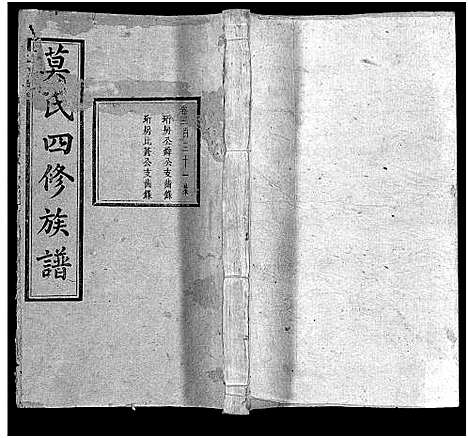 莫氏四修族譜
卷三百三十一
珩房公舜公支齒錄
珩房比孟公支齒錄